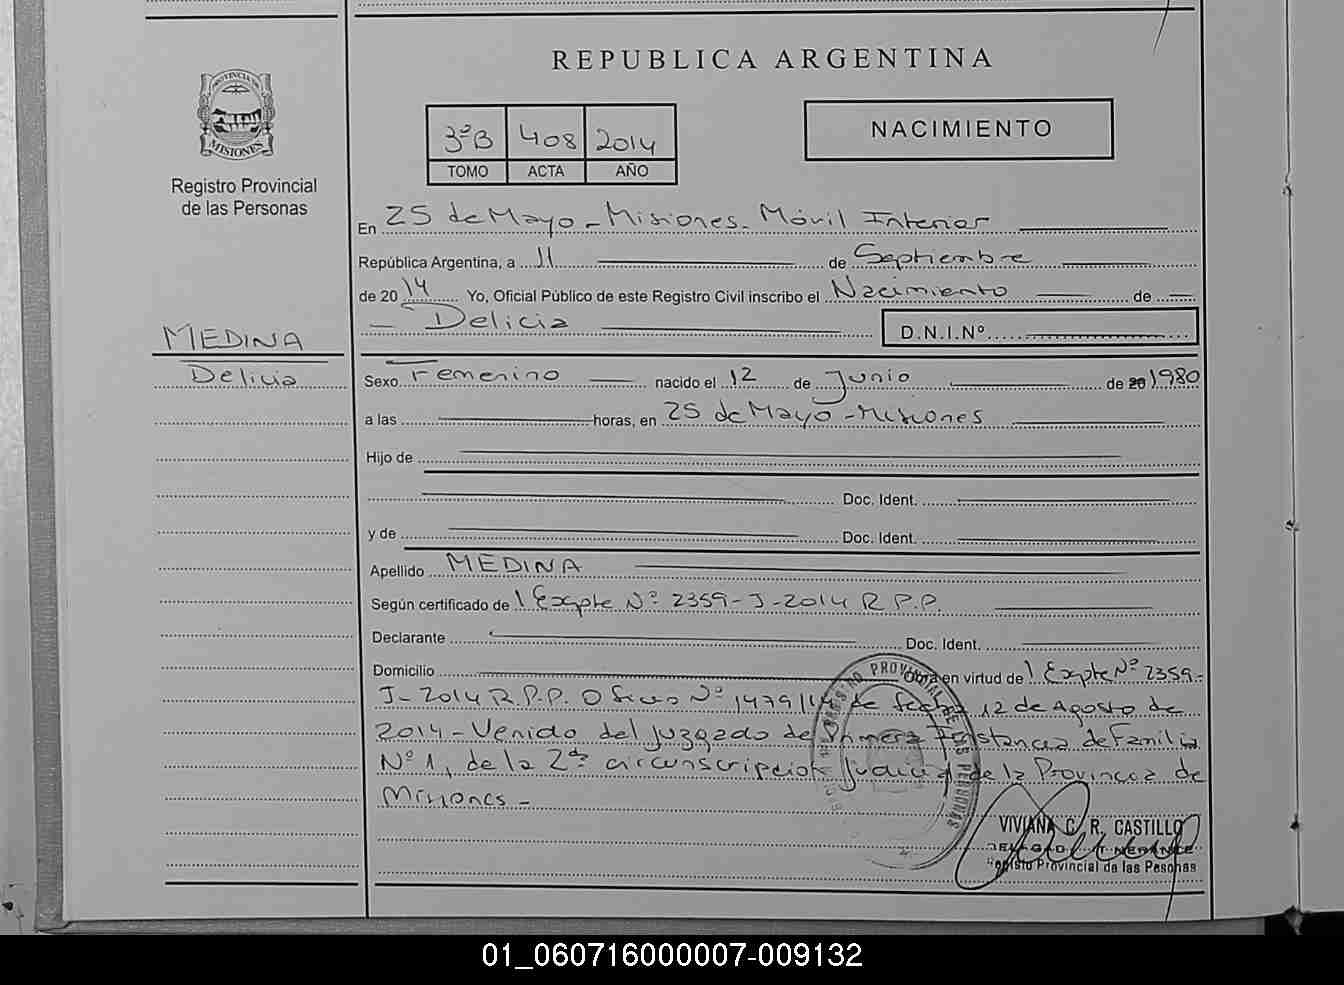 REPUBLICA ARGENTINA
PROVINCIA DE
MISIONES
Registro Provincial
de las Personas
3ºB 408 2014
TOMO ACTA AÑO
NACIMIENTO
En 25 de Mayo - Misiones. Móvil Interior
República Argentina, a 11 de Septiembre
de 2014 Yo, Oficial Público de este Registro Civil inscribo el Nacimiento de
Delicia D.N.I.Nº
MEDINA
Delicia
Sexo Femenino nacido el 12 de Junio de 20 1980
a las horas, en 25 de Mayo - Misiones
Hijo de
Doc. Ident.
y de Doc. Ident.
Apellido MEDINA
Según certificado de Expte Nº 2359-J-2014 R.P.P.
Declarante Doc. Ident.
Domicilio Obra en virtud de Expte Nº 2359-
J-2014 R.P.P. Oficio Nº 1479/14 de fecha 12 de Agosto de
2014 - Venido del Juzgado de Primera Instancia de Familia
Nº 1, de la 2da circunscripcion Judicial de la Provincia de
Misiones -
REGISTRO PROVINCIAL DE LAS PERSONAS
VIVIANA C. R. CASTILLO
Registo Provincial de las Pesonas
01_060716000007-009132